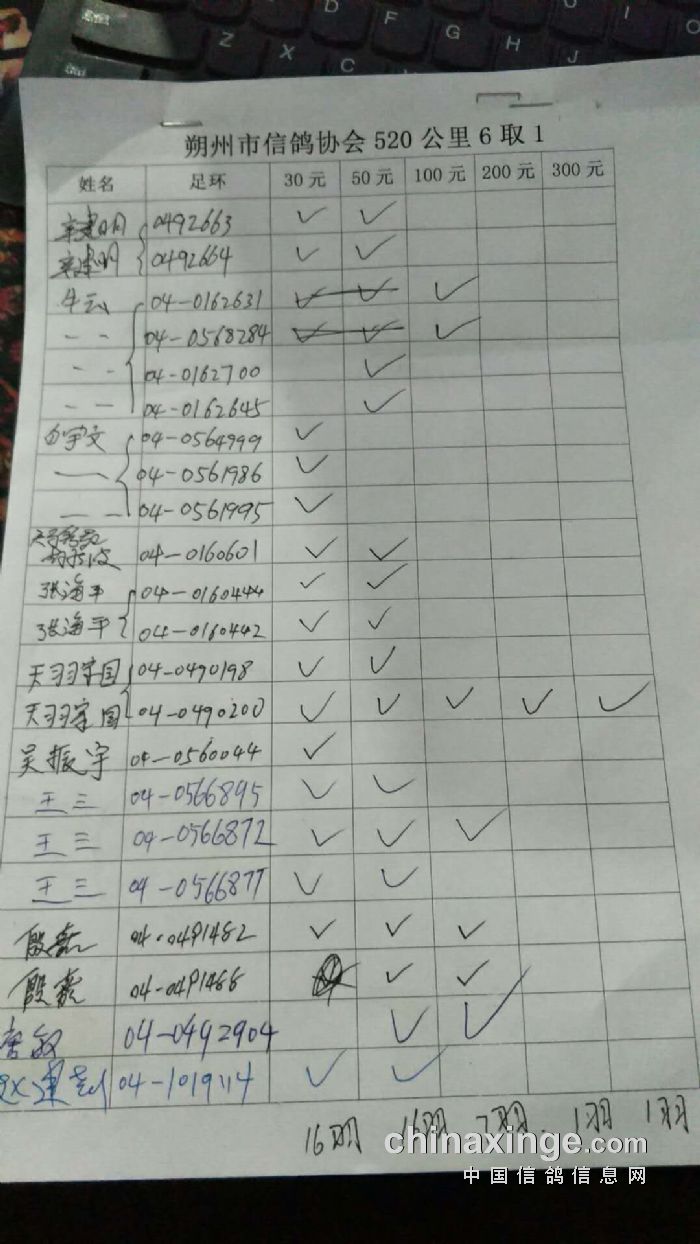 朔州市信鸽协会520公里6取1
姓名 足环 30元 50元 100元 200元 300元
辛建明 0492663 ✓ ✓
辛建明 0492664 ✓ ✓
牛云 04-0162631 ✓ ✓ ✓
-- 04-0568284 ✓ ✓ ✓
-- 04-0162700 ✓
-- 04-0162645 ✓
04-0564999 ✓
— 04-0561986 ✓
-- 04-0561995 ✓
04-0160601 ✓ ✓
张海平 04-0160444 ✓ ✓
张海平 04-0160442 ✓ ✓
天羽宇国 04-0490198 ✓ ✓
天羽宇国 04-0490200 ✓ ✓ ✓ ✓ ✓
吴振宇 04-0560044 ✓
王三 04-0566895 ✓ ✓
王三 04-0566872 ✓ ✓ ✓
王三 04-0566877 ✓ ✓
殷 04-0491482 ✓ ✓ ✓
殷 04-0491488 ✓ ✓
04-0492904 ✓ ✓
04-1019114 ✓ ✓
16羽 16羽 7羽. 1羽 1羽
chinaxinge.com
中国信鸽信息网